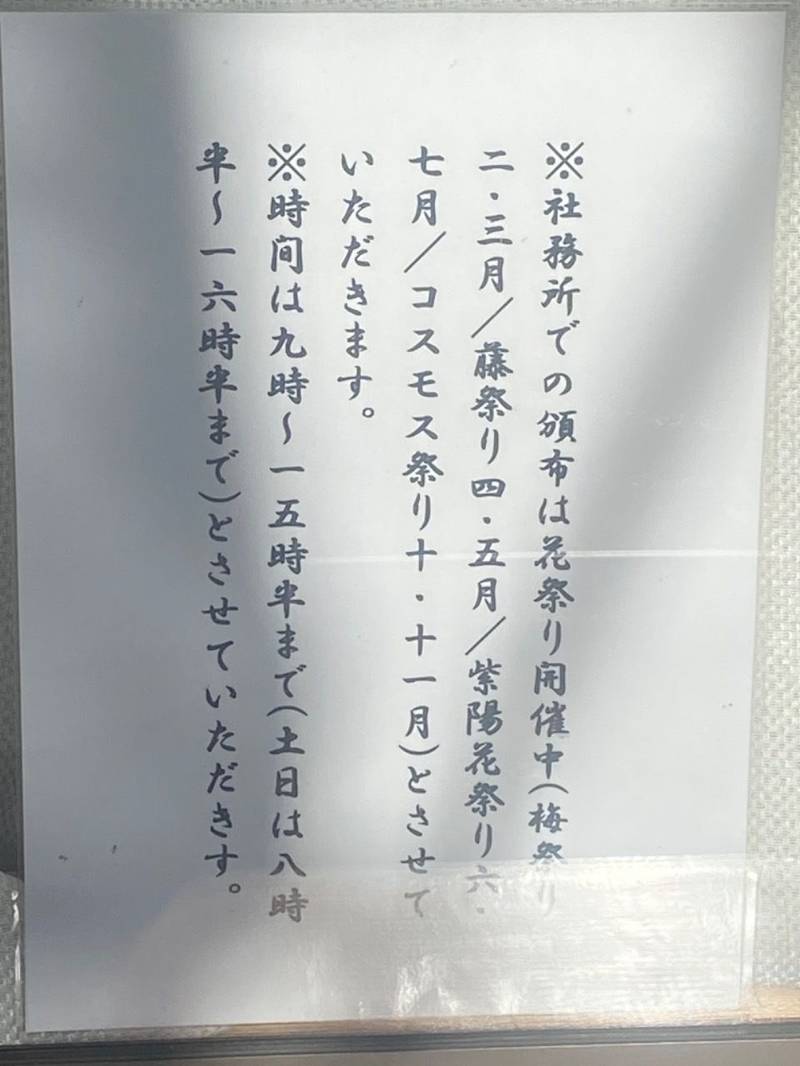 ※社務所での頒布は花祭り開催中(梅祭り
二・三月／藤祭り四・五月／紫陽花祭り六・
七月／コスモス祭り十・十一月)とさせて
いただきます。
※時間は九時～一五時半まで(土日は八時
半～一六時半まで)とさせていただきす。